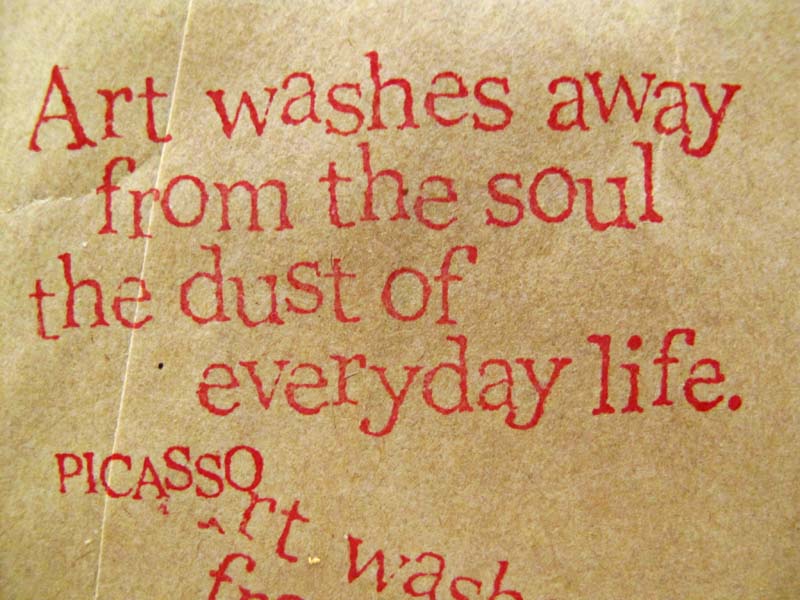 Art washes away
from the soul
the dust of
everyday life.
PICASSO
Art wash
fro